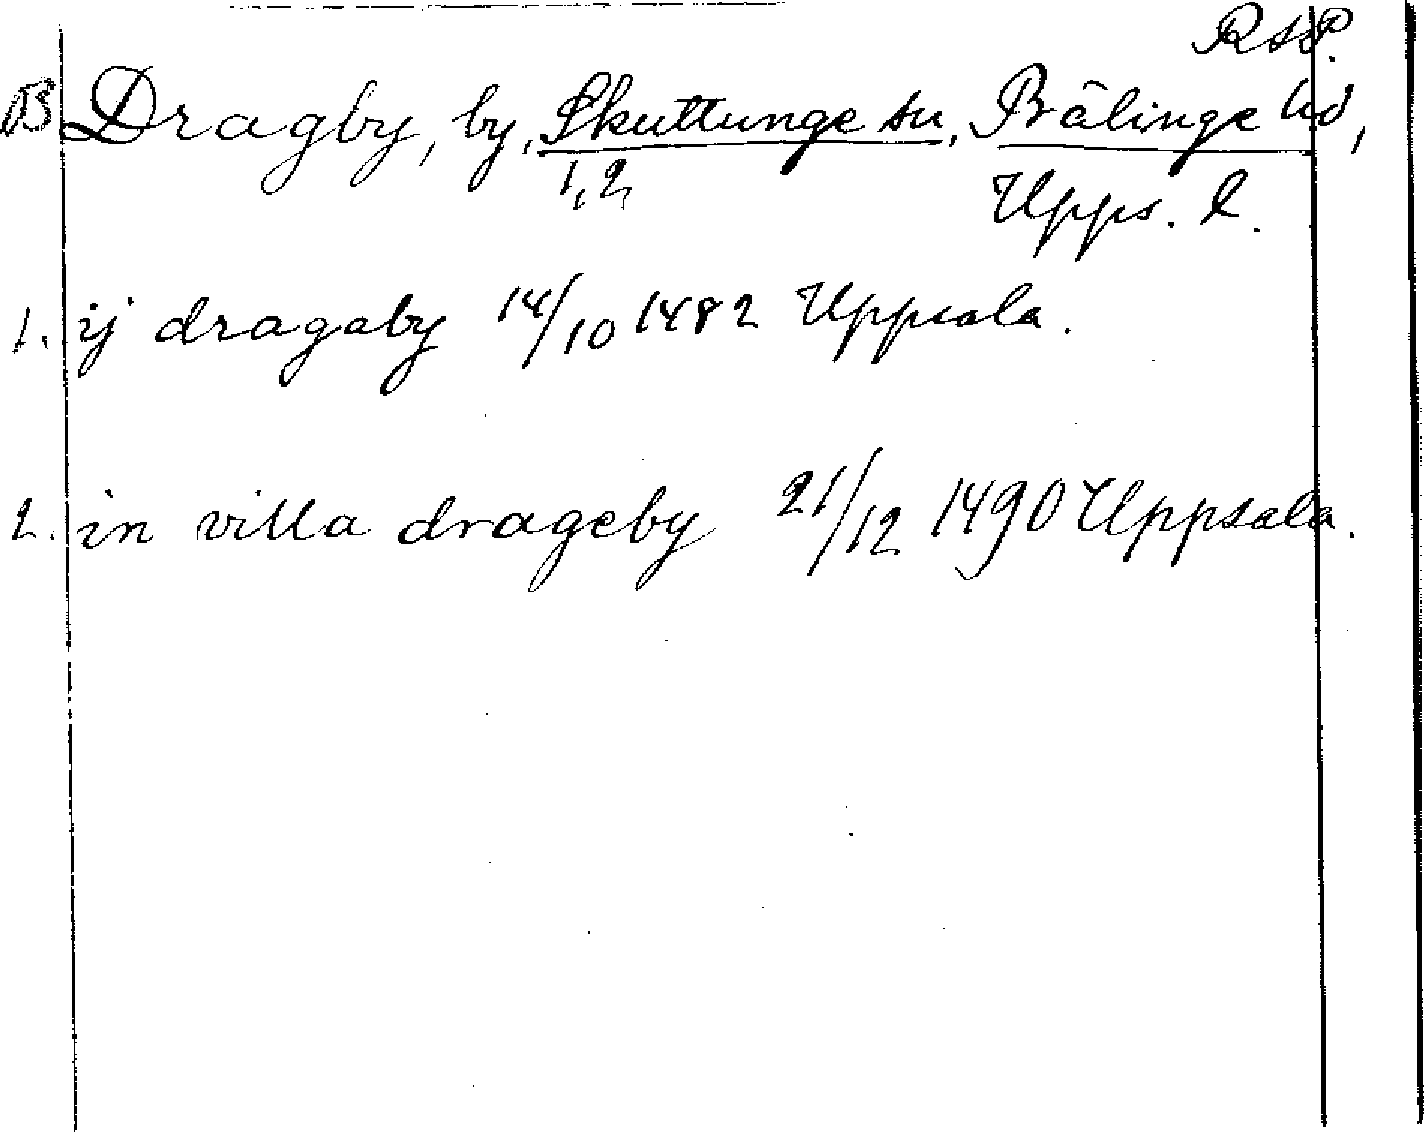 RAP.
B Dragby, by, Skuttunge sn, Bälinge hd,
1,2 Upps. l.
1. ij dragaby 14/10 1482 Uppsala.
2. in villa drageby 21/12 1490 Uppsala.